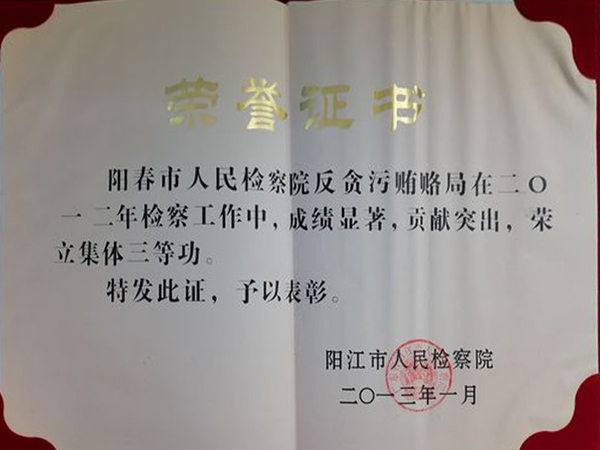 荣誉证书
阳春市人民检察院反贪污贿赂局在二〇
一二年检察工作中，成绩显著，贡献突出，荣
立集体三等功。
特发此证，予以表彰。
阳江市人民检察院
二〇一三年一月